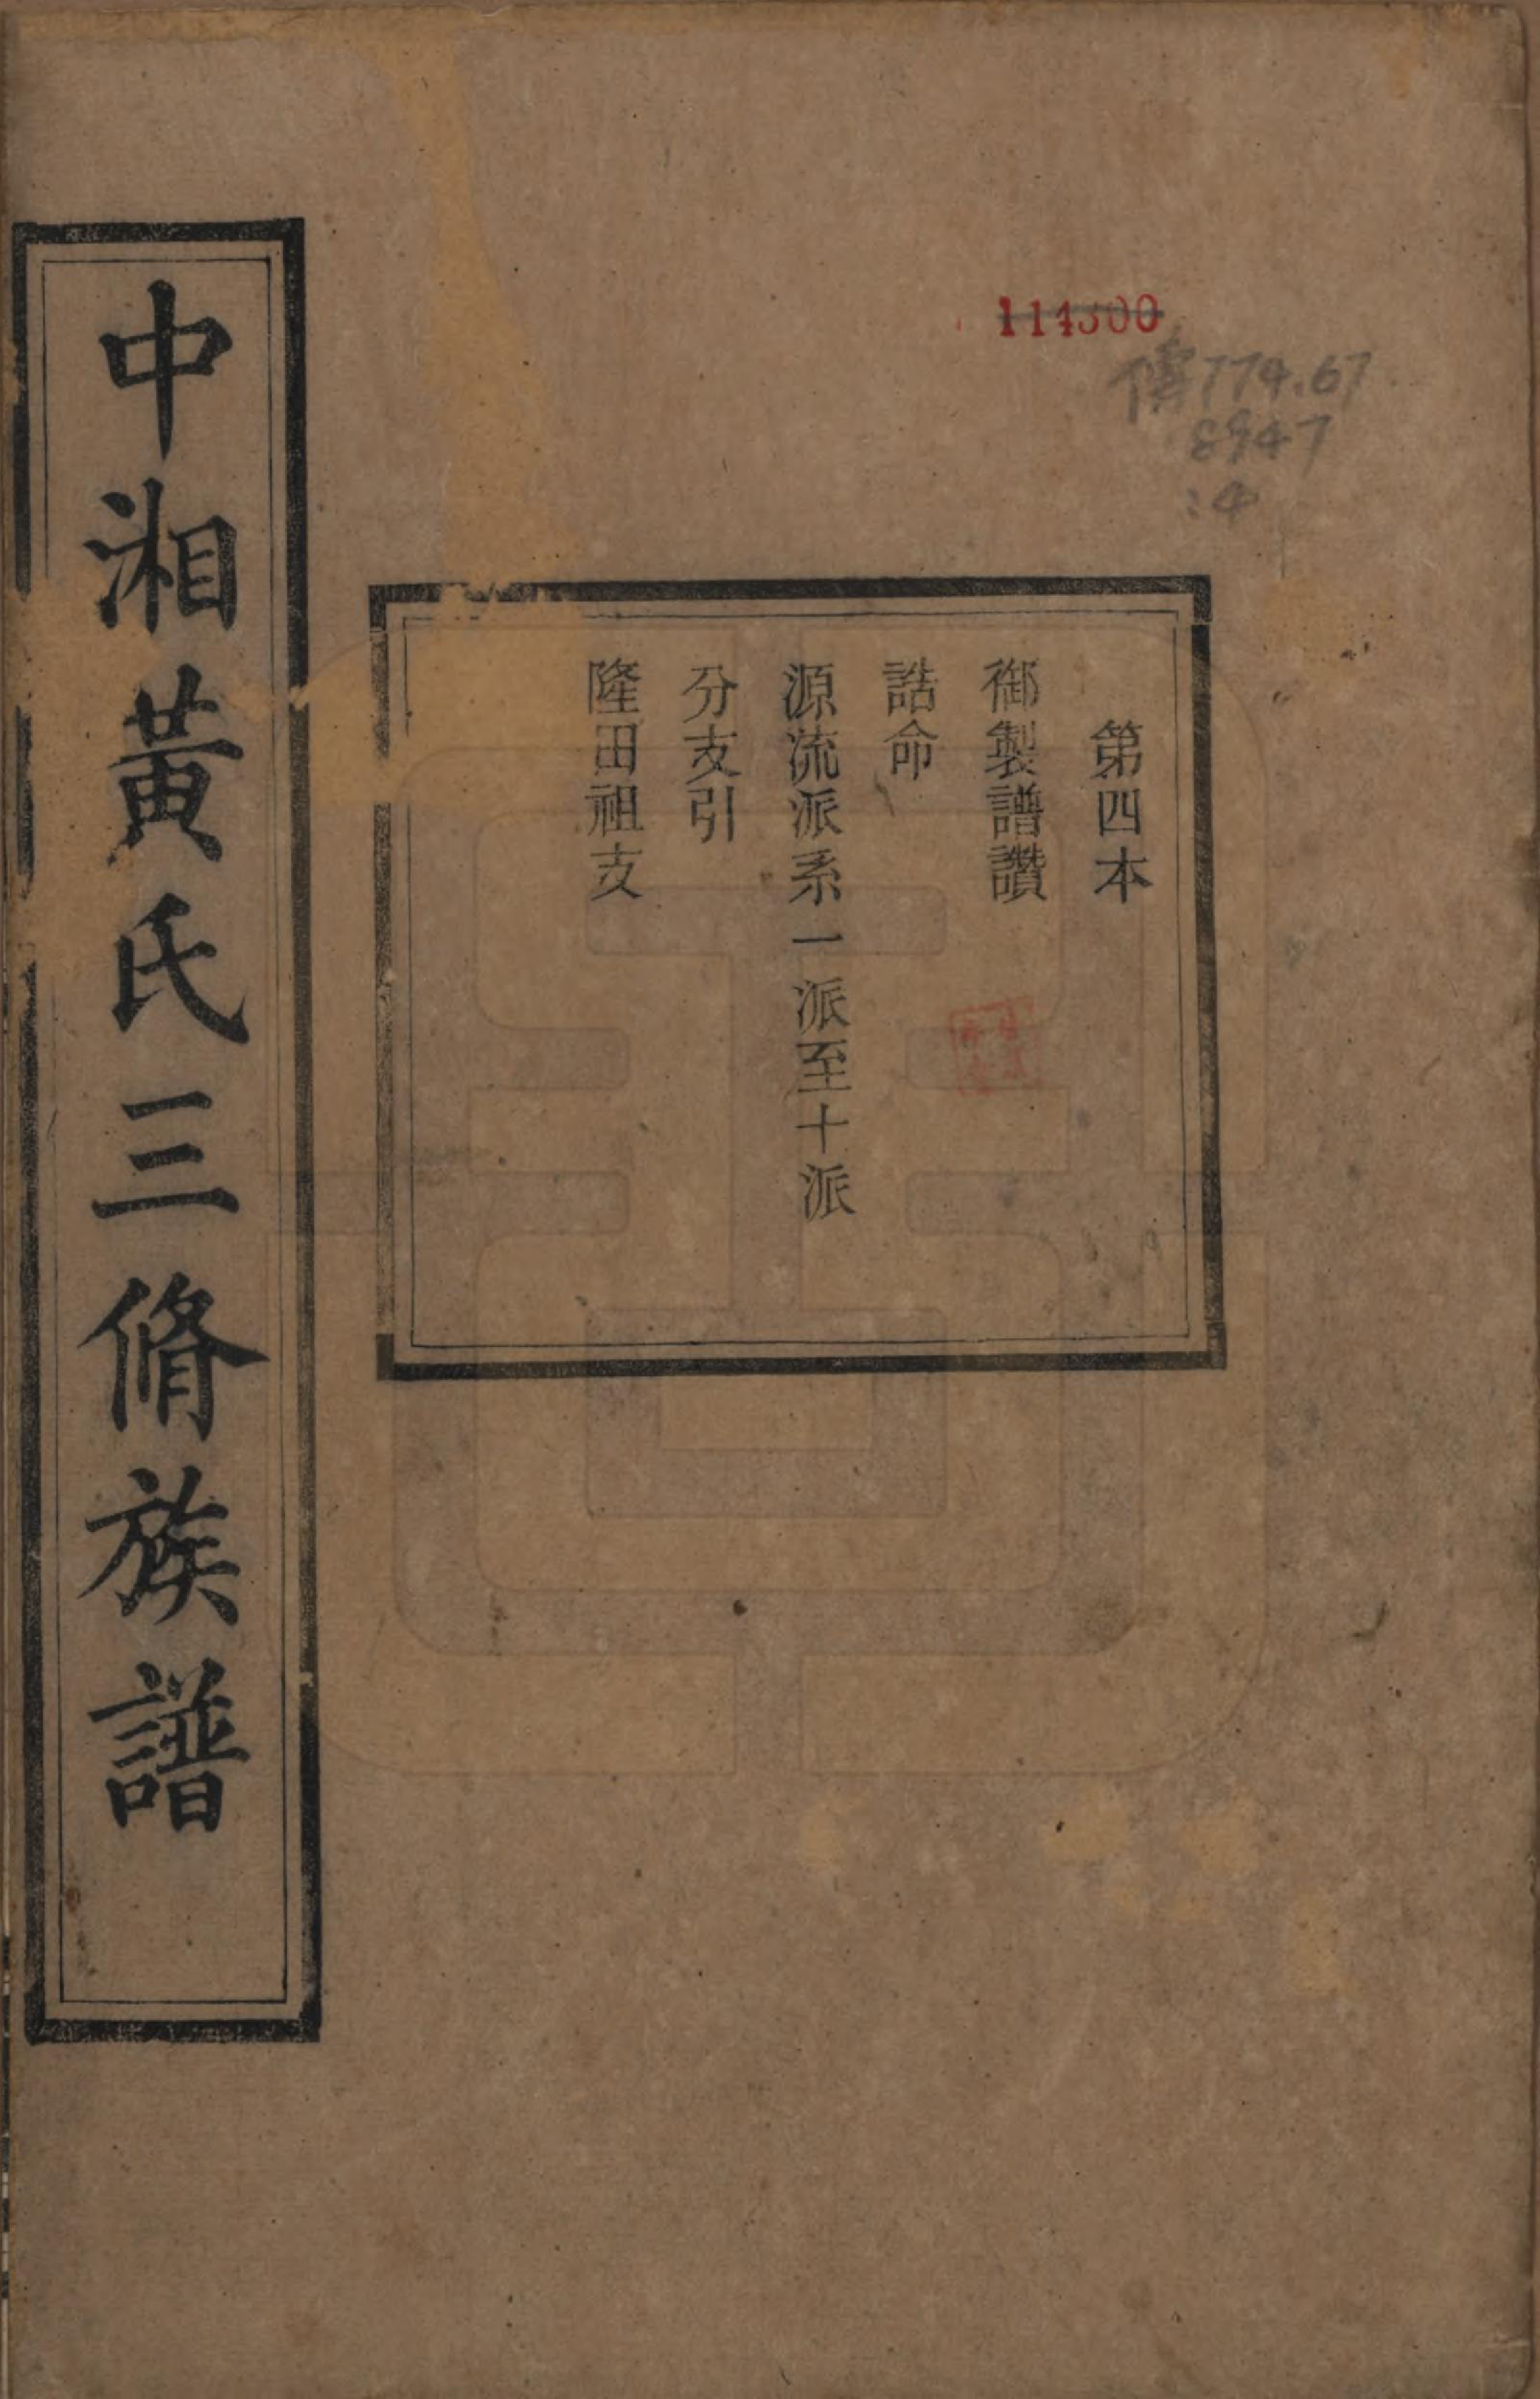 中湘黃氏三脩族譜
第四本
御製譜讚
誥命
源流派系一派至十派
分支引
隆田祖支
114300
傳774.67
8947
:4